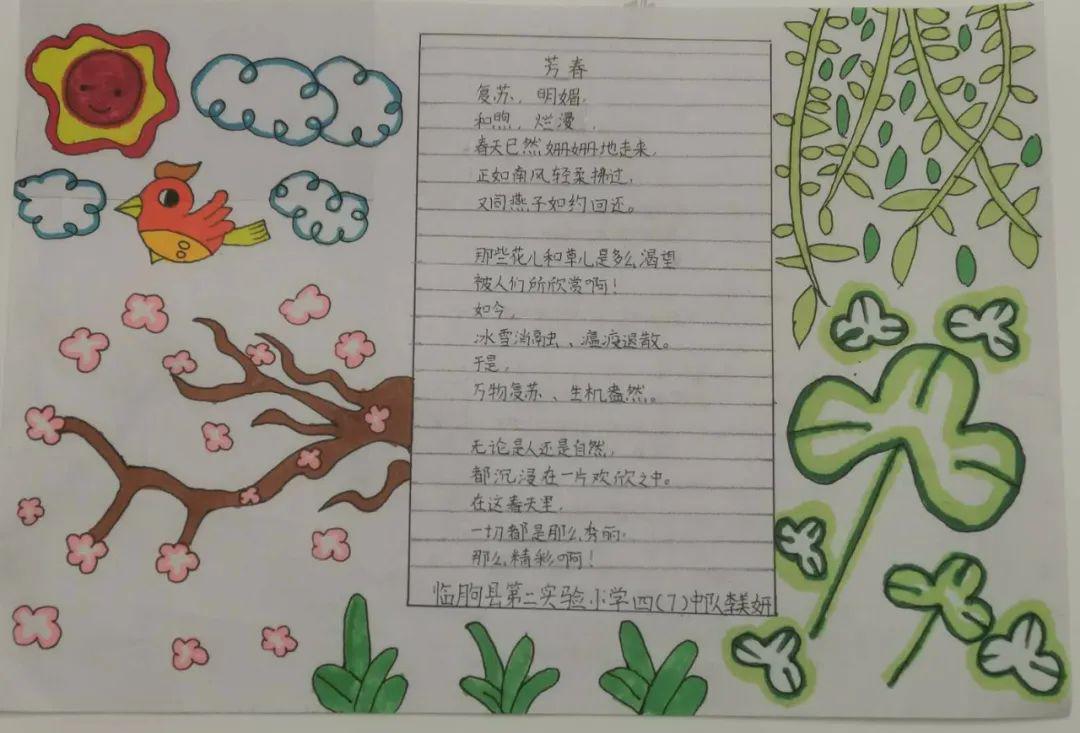 芳春
复苏，明媚，
和煦，烂漫，
春天已然姗姗地走来，
正如南风轻柔拂过，
又同燕子如约回还。
那些花儿和草儿是多么渴望
被人们所欣赏啊！
如今，
冰雪消融、瘟疫退散。
于是，
万物复苏、生机盎然。
无论是人还是自然，
都沉浸在一片欢欣之中。
在这春天里，
一切都是那么秀丽，
那么精彩啊！
临朐县第二实验小学四(7)中队李美妍